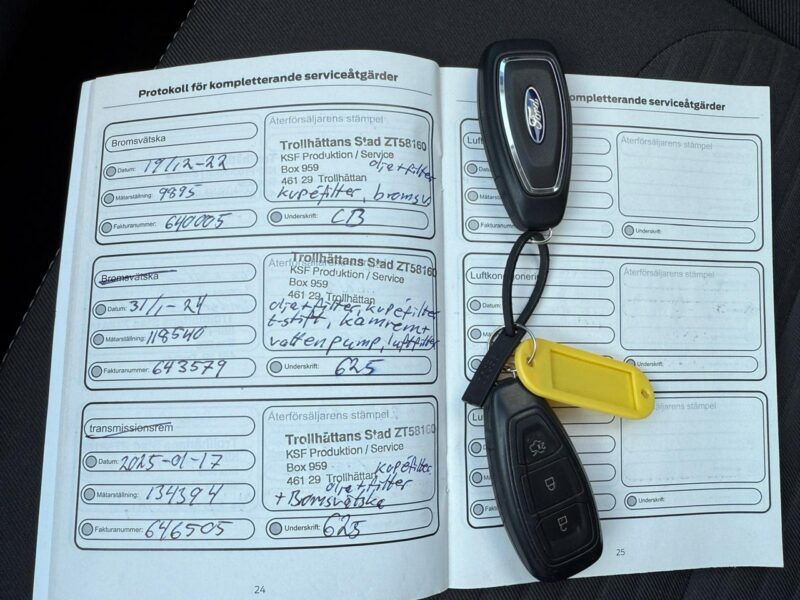 Protokoll för kompletterande serviceåtgärder
Bromsvätska
Datum: 19/12-22
Mätarställning: 9895
Fakturanummer: 640005
Återförsäljarens stämpel
Trollhättans Stad ZT58160
KSF Produktion / Service
Box 959
olja+filter
461 29 Trollhättan
kupéfilter, bromsv
Underskrift: CB
Bromsvätska
Datum: 31/1-24
Mätarställning: 118540
Fakturanummer: 643579
Återförsäljarens stämpel
Trollhättans Stad ZT58160
KSF Produktion / Service
Box 959
461 29 Trollhättan
olja+filter, kupéfilter
t-stift, kamrem+
vattenpump, luftfilter
Underskrift: 625
transmissionsrem
Datum: 2025-01-17
Mätarställning: 134394
Fakturanummer: 646505
Återförsäljarens stämpel
Trollhättans Stad ZT58160
KSF Produktion / Service
Box 959
kupéfilter
461 29 Trollhättan
olja+filter
+ Bromsvätska
Underskrift: 625
24
kompletterande serviceåtgärder
Luft
Datum:
Mätarställning:
Fakturanummer:
Återförsäljarens stämpel
Underskrift:
Luftkonditionering
Datum:
Mätarställning
Återförsäljarens stämpel
Underskrift:
Återförsäljarens stämpel
Underskrift:
25
Ford